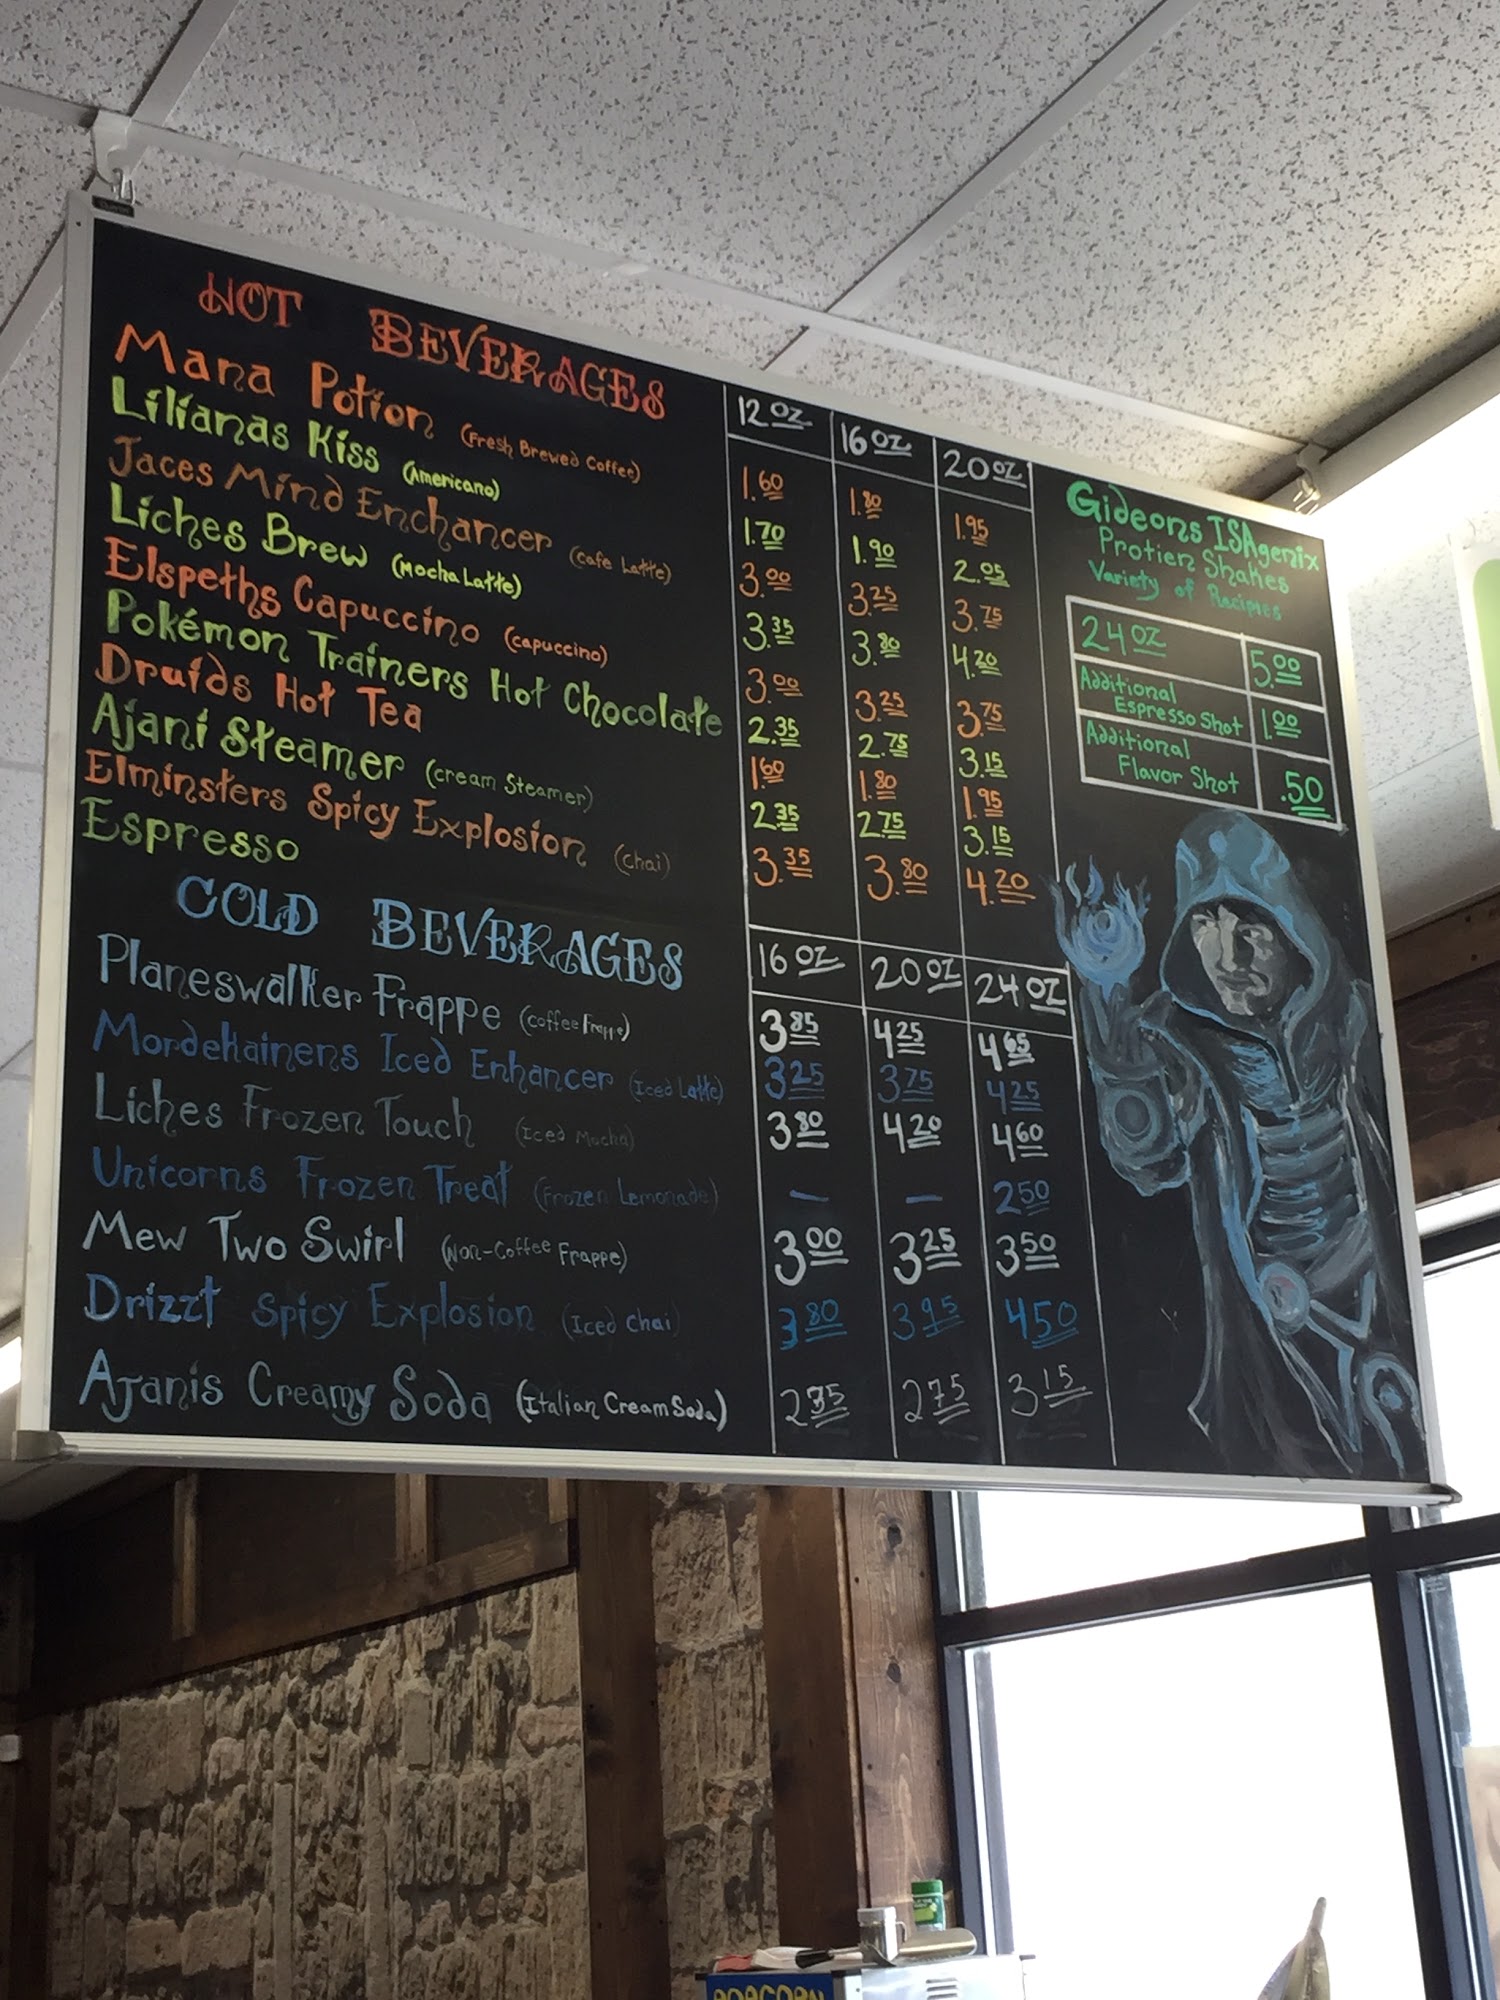 HOT BEVERAGES
12 OZ 16 OZ 20 OZ
Mana Potion (Fresh Brewed Coffee) 1.60 1.80 1.95
Lilianas Kiss (Americano) 1.70 1.90 2.05
Jaces Mind Enchancer (cafe Latte) 3.00 3.25 3.75
Liches Brew (Mocha Latte) 3.35 3.80 4.20
Elspeths Capuccino (capuccino) 3.00 3.25 3.75
Pokémon Trainers Hot Chocolate 2.35 2.75 3.15
Druids Hot Tea 1.60 1.80 1.95
Ajani Steamer (cream Steamer) 2.35 2.75 3.15
Elminsters Spicy Explosion (chai) 3.35 3.80 4.20
Espresso
COLD BEVERAGES
16 OZ 20 OZ 24 OZ
Planeswalker Frappe (Coffee Frappe) 3.85 4.25 4.65
Mordekainens Iced Enhancer (Iced Latte) 3.25 3.75 4.25
Liches Frozen Touch (Iced Mocha) 3.80 4.20 4.60
Unicorns Frozen Treat (Frozen Lemonade) — — 2.50
Mew Two Swirl (Non-Coffee Frappe) 3.00 3.25 3.50
Drizzt Spicy Explosion (Iced Chai) 3.80 3.95 4.50
Ajanis Creamy Soda (Italian Cream Soda) 2.75 3.15
Gideons ISAgenix
Protien Shakes
Variety of Recipies
24 OZ 5.00
Additional
Espresso Shot 1.00
Additional
Flavor Shot .50
POPCORN